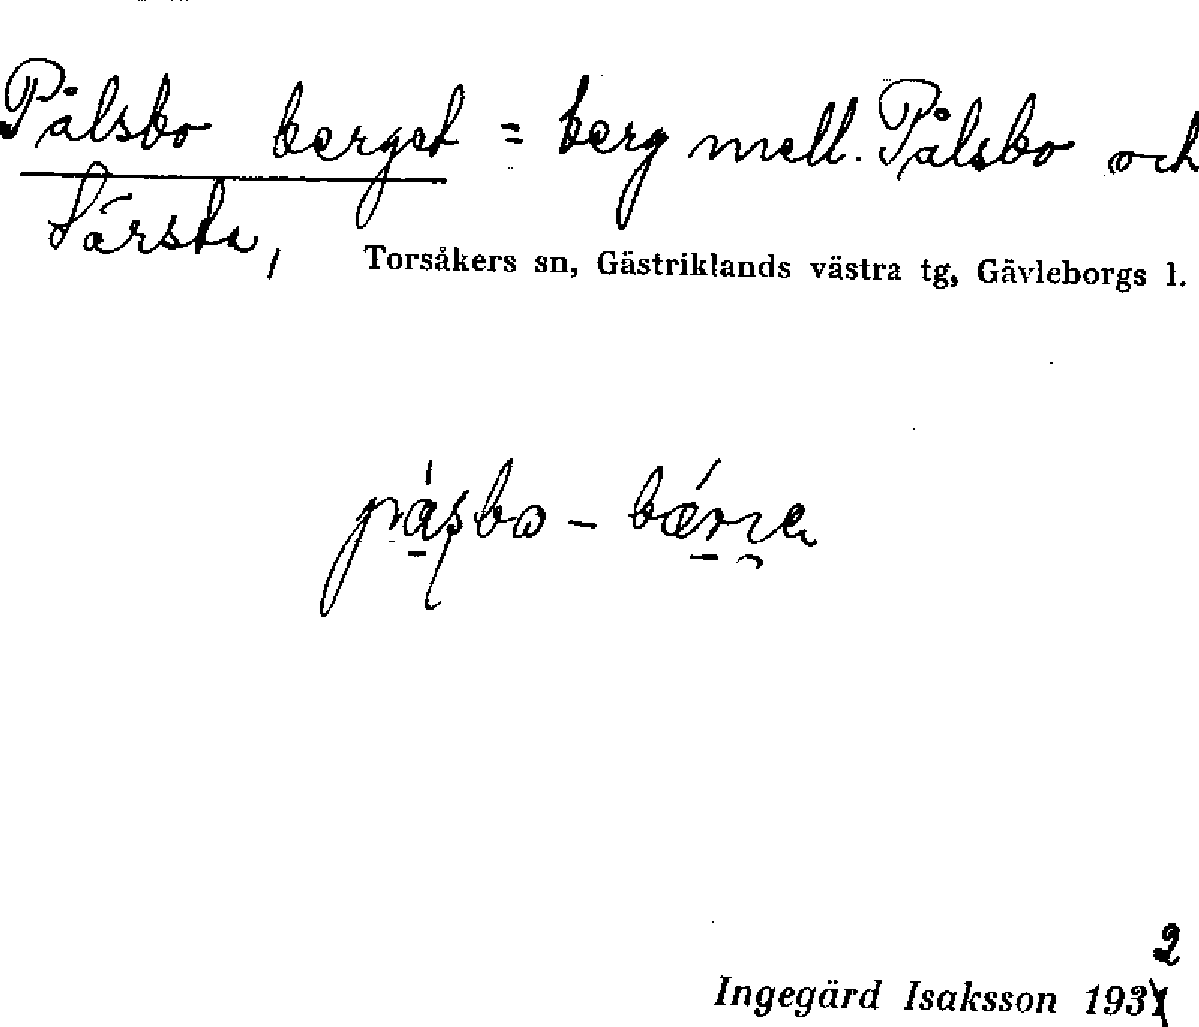 Pålsbo berget = berg mell. Pålsbo och
Särsta,
Torsåkers sn, Gästriklands västra tg, Gävleborgs l.
2
Ingegärd Isaksson 193